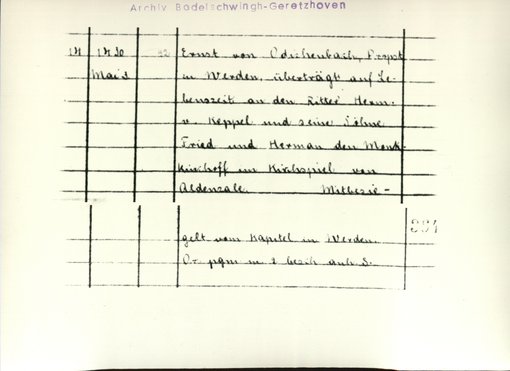 Archiv Bodelschwingh-Geretzhoven
14 1420 42 Ernst von Odichenbach, Propst
Mai 1 in Werden, überträgt auf Le-
benszeit an den Ritter Herm.
v. Keppel und seine Söhne
Fried und Herman den Monk-
Kirchoff im Kirchspiel von
Aldenzale. Mitbesie-
gelt vom Kapitel in Werden.
Or. pgm m. 2 besch. anh. S.